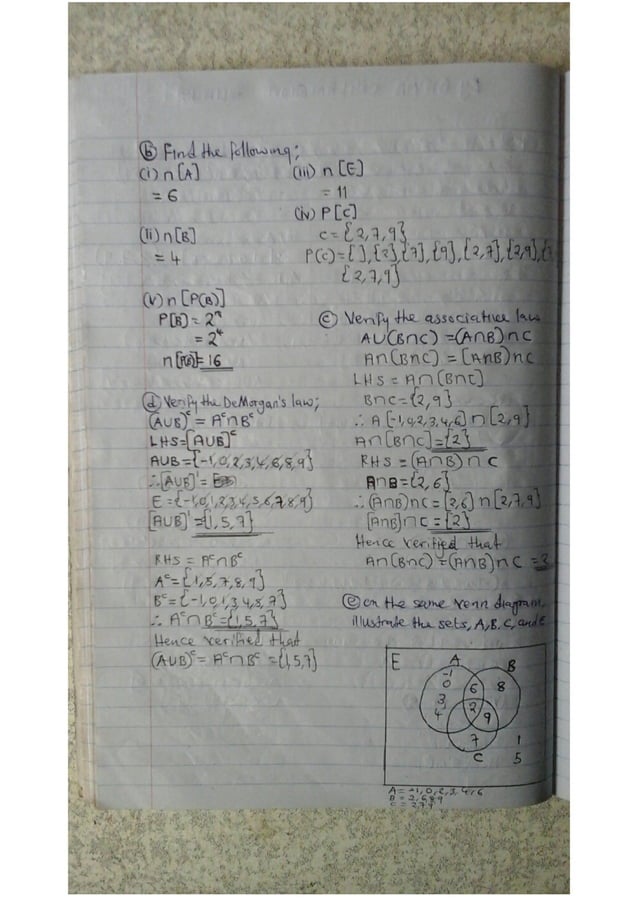 ⓑ Find the following;
(i) n[A]
= 6
(ii) n[B]
= 4
(iii) n[E]
= 11
(iv) P[C]
C = {2,7,9}
P(C) = [ ], {2}, {7}, {9}, {2,7}, {2,9},
{2,7,9}
(v) n[P(B)]
P[B] = 2ⁿ
= 2⁴
n[P(B)] = 16
ⓒ Verify the associative law
AU(B∩C) = (A∩B)∩C
A∩(B∩C) = [A∩B)∩C
LHS = A∩(B∩C)
B∩C = {2,9}
∴ A{-1,0,2,3,4,6}∩{2,9}
A∩[B∩C] = {2}
RHS = (A∩B)∩C
A∩B = {2,6}
∴ (A∩B)∩C = {2,6}∩{2,7,9}
[A∩B]∩C = {2}
Hence verified that
A∩(B∩C) = (A∩B)∩C =
ⓓ Verify the DeMorgan's law;
(AUB)ᶜ = Aᶜ∩Bᶜ
LHS = [AUB]ᶜ
AUB = {-1,0,2,3,4,6,8,9}
∴ [AUB]' =
E = {-1,0,1,2,3,4,5,6,7,8,9}
[AUB]' = {1,5,7}
RHS = Aᶜ∩Bᶜ
Aᶜ = {1,5,7,8,9}
Bᶜ = {-1,0,1,3,4,5,7}
∴ Aᶜ∩Bᶜ = {1,5,7}
Hence verified that
(AUB)ᶜ = Aᶜ∩Bᶜ = {1,5,7}
ⓔ on the same venn diagram,
illustrate the sets, A, B, C, and E
E A B
-1
0 6 8
3 2
4 9
7 1
C 5
A = -1,0,2,3,4,6
B = 2,6,8,9
C = 2,7,9